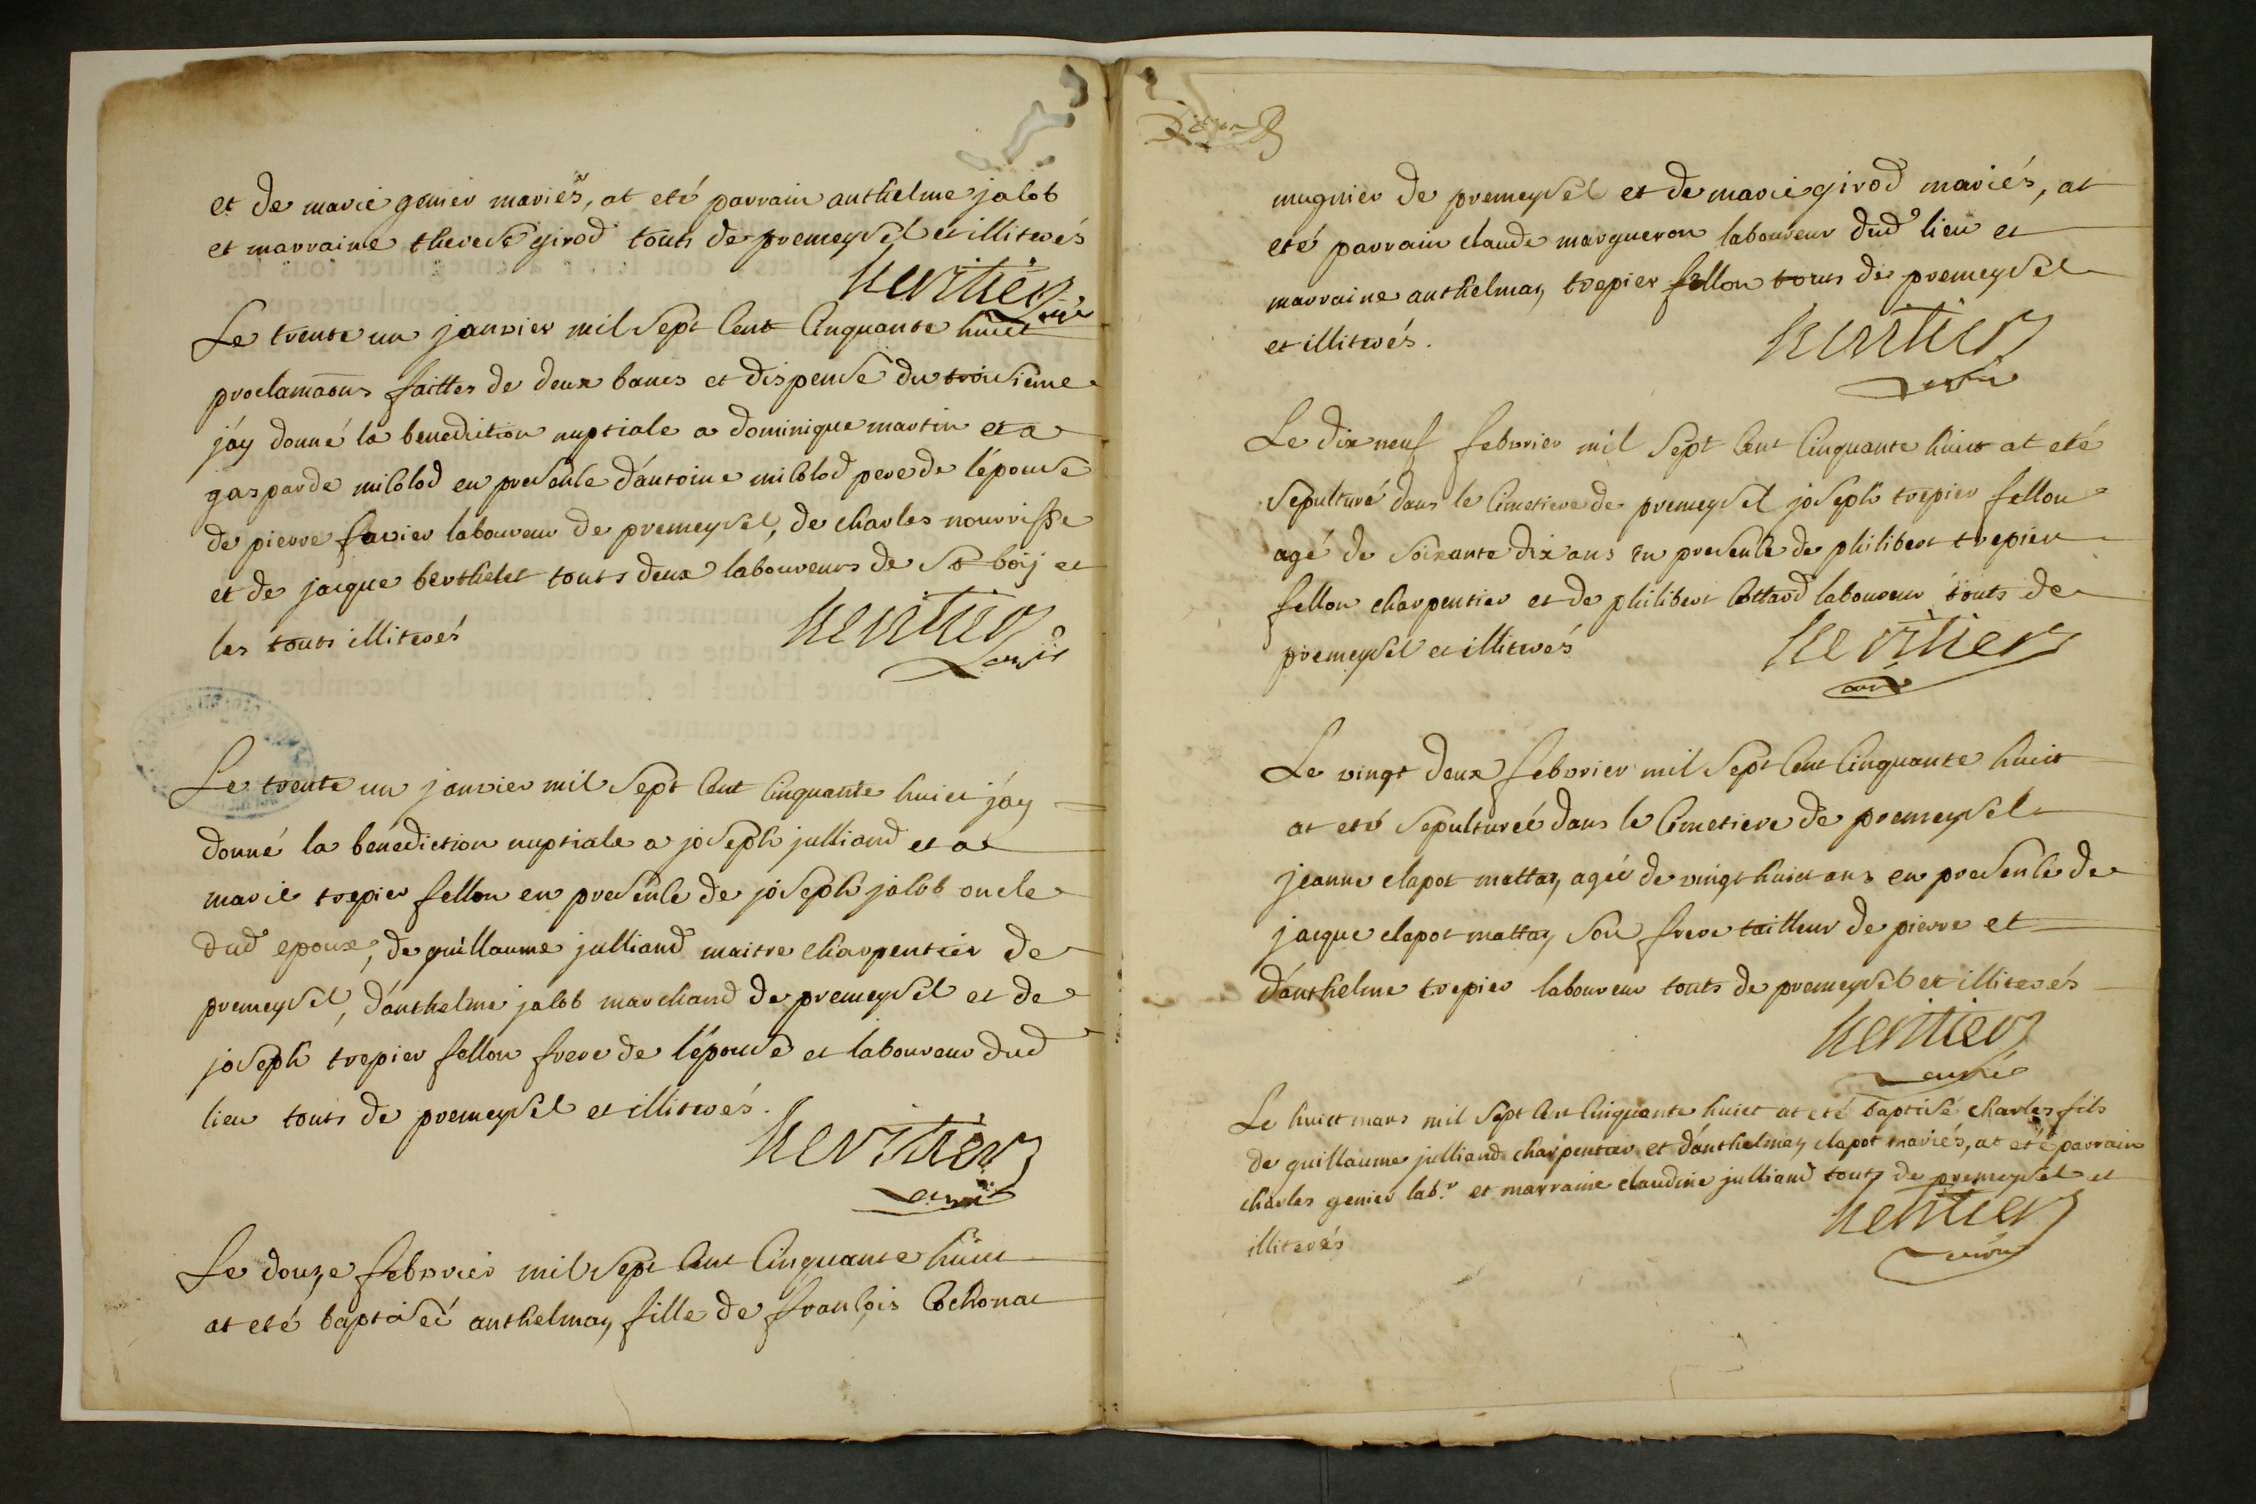 et de marie genier mariés, at eté parrain anthelme jacob
et marraine therese girod touts de premeysel et illiterés
heritier curé
Le trente un janvier mil sept cent cinquante huict
proclamaõns faittes de deux bancs et dispense du troisieme
j'ay donné la benediction nuptiale a dominique martin et a
gasparde milolod en presence d'antoine milolod pere de l'épouse
de pierre favier laboureur de premeysel, de charles nourrisse
et de jacque berthelet touts deux laboureurs de St boij et
les touts illiterés
heritier
curé
Le trente un janvier mil sept cent cinquante huict j'ay
donné la benediction nuptiale a joseph julliand et a
marie trepier fellon en presence de joseph jacob oncle
dud epoux, de guillaume julliand maitre charpentier de
premeysel, d'anthelme jacob marchand de premeysel et de
joseph trepier fellon frere de l'épouse et laboureur dud
lieu touts de premeysel et illiterés.
heritier
curé
Le douze febvrier mil sept cent cinquante huict
at eté baptisée anthelmaz fille de françois cochonat
mugnier de premeysel et de marie girod mariés, at
eté parrain claude margueron laboureur dud lieu et
marraine anthelmaz trepier fellon touts de premeysel
et illiterés.
heritier
curé
Le dix neuf febvrier mil sept cent cinquante huict at eté
sepulturé dans le cimetiere de premeysel joseph trepier fellon
agé de soixante dix ans en presence de philibert trepier
fellon charpentier et de philibert cottard laboureur touts de
premeysel et illiterés
heritier
curé
Le vingt deux febvrier mil sept cent cinquante huict
at eté sepulturée dans le cimetiere de premeysel
jeanne clapot mattaz agée de vingt huict ans en presence de
jacque clapot mattaz son frere tailleur de pierre et
d'anthelme trepier laboureur touts de premeysel et illiterés
heritier
curé
Le huict mars mil sept cent cinquante huict at eté baptisé charles fils
de guillaume julliand charpentier et d'anthelmaz clapot mariés, at eté parrain
charles genier lab.r et marraine claudine julliand touts de premeysel et
illiterés
heritier
curé